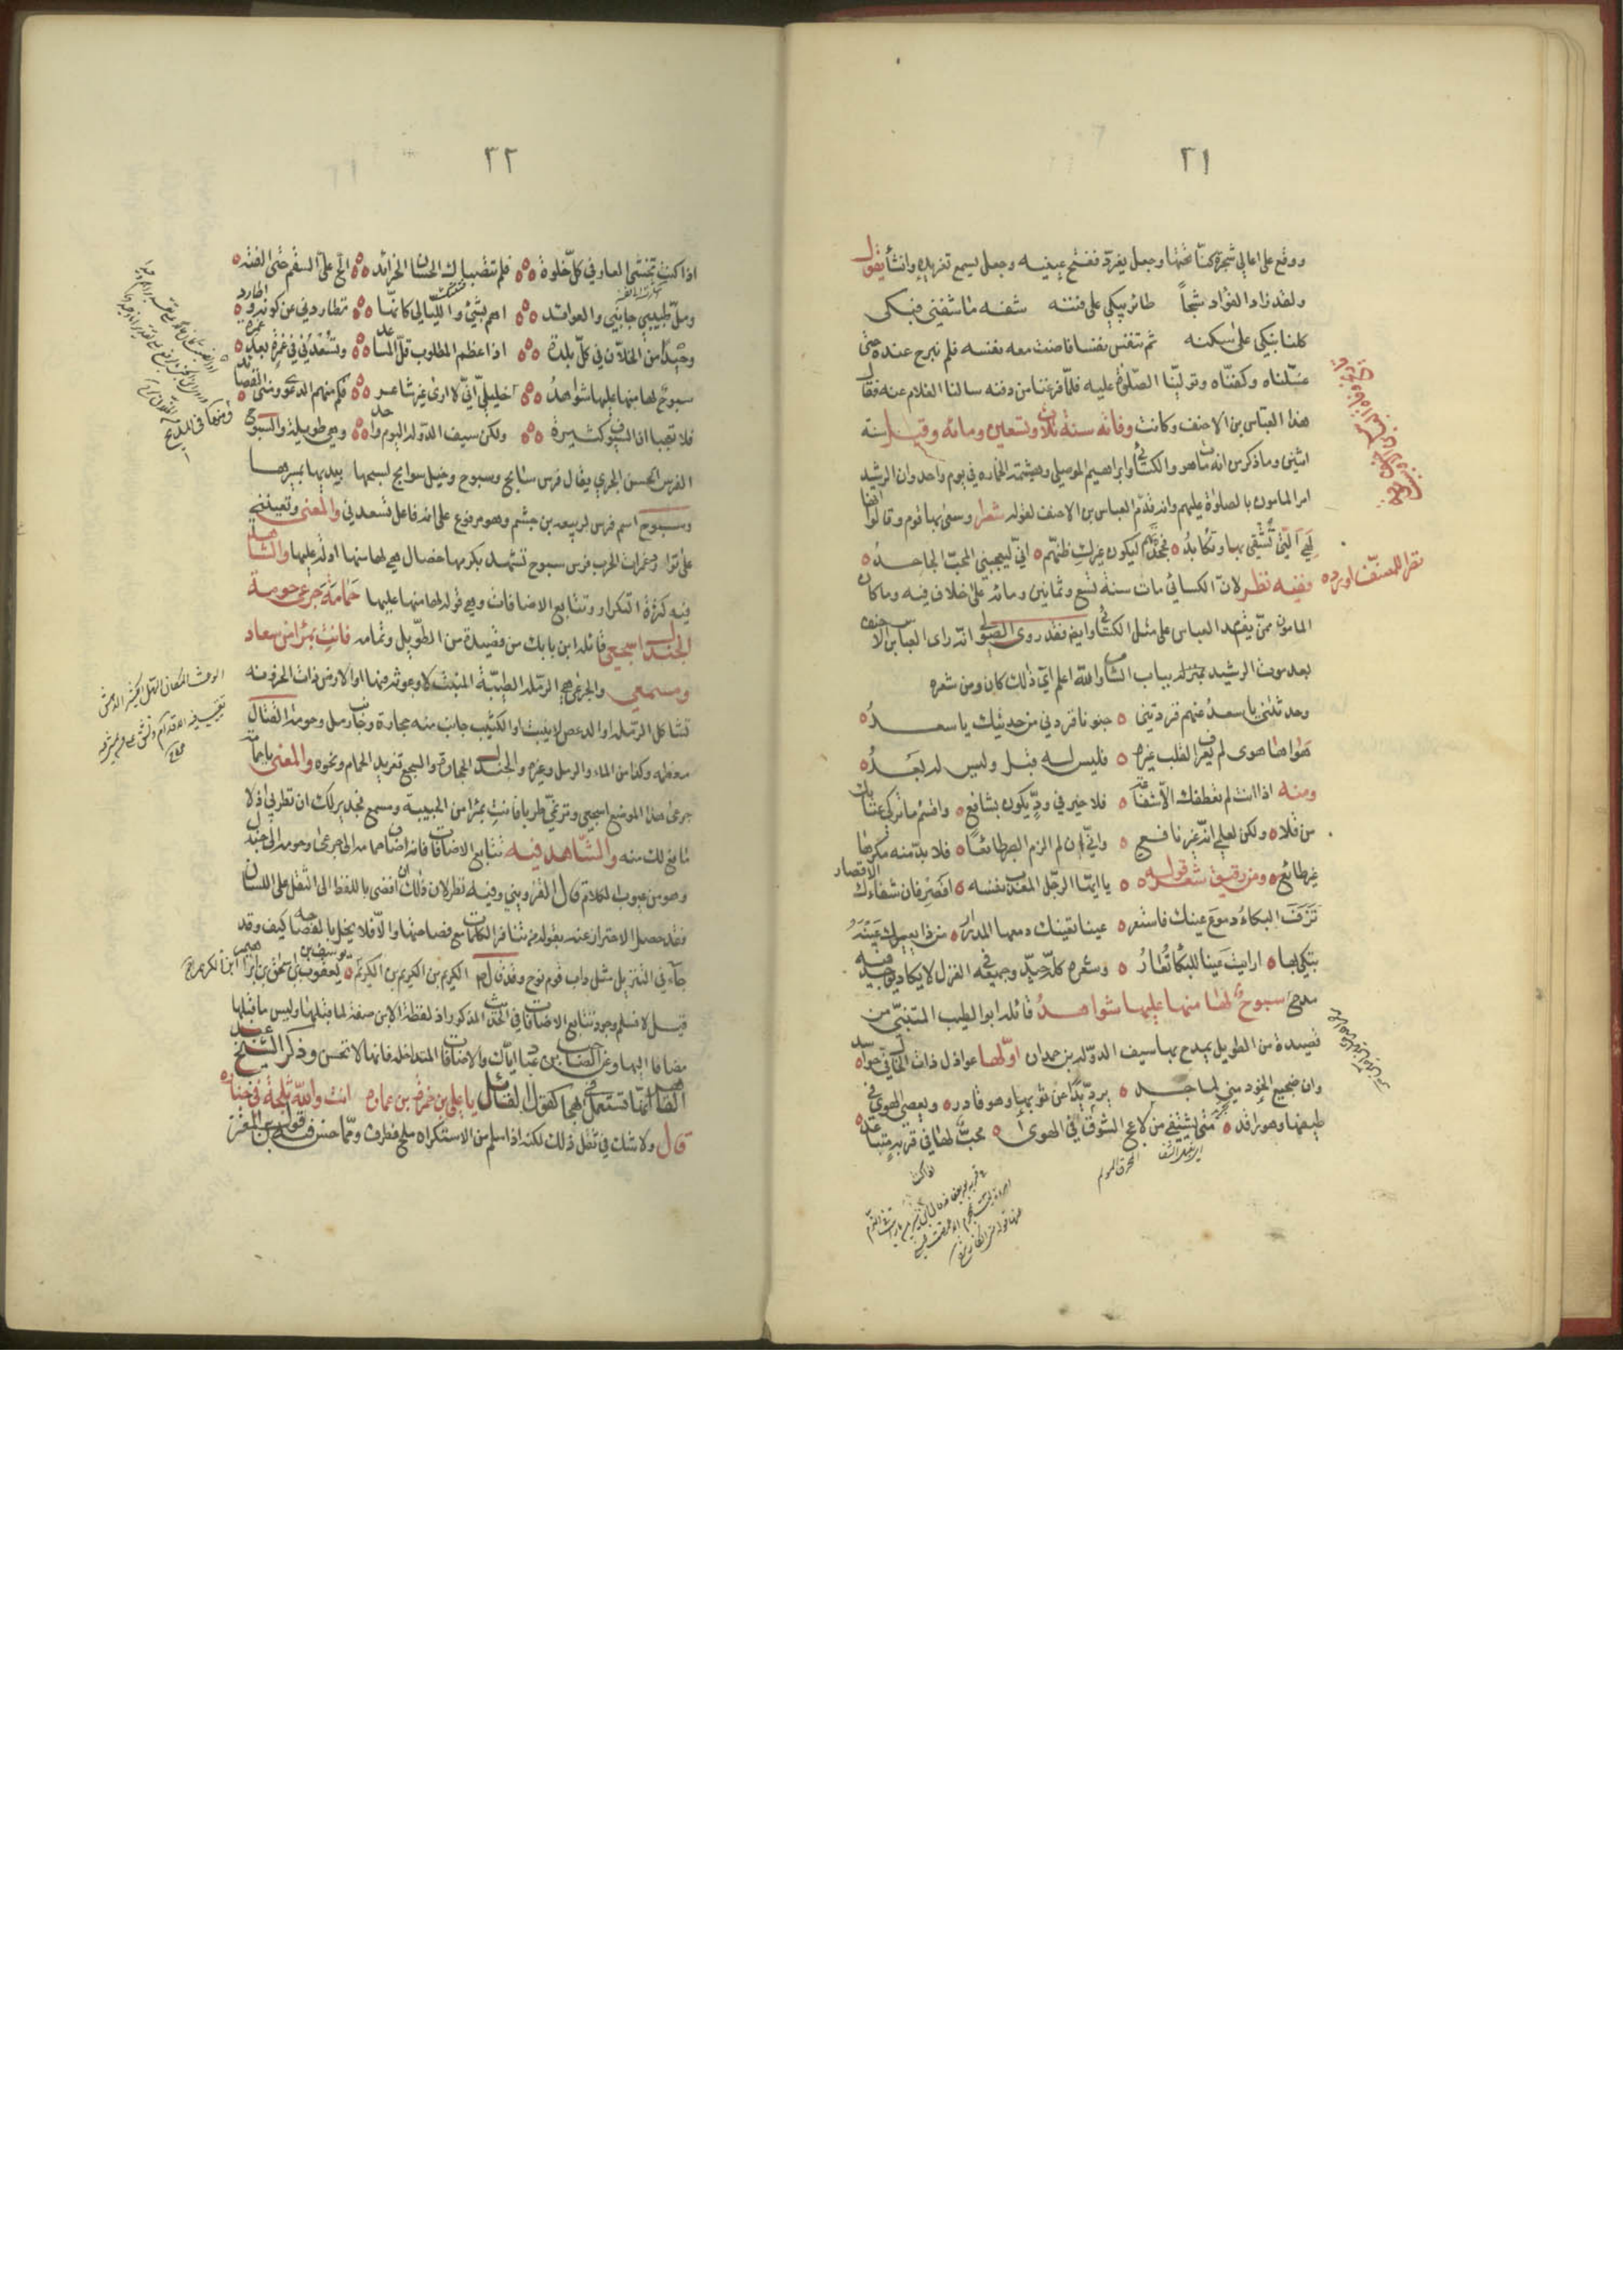 ٢١
ووقع على اعالي شجرة كنّا تحتها وجعل يغرد ففتح عينيه وجعل يسمع تغريده وانشأ يقول
ولقد زاد الفؤاد شجاً طائر يبكي على فننه شفه ما شفني فبكى
كلنا يبكي على سكنه ثم تنفس نفسا فاضت معه نفسه فلم نبرح عنده حتى
غسّلناه وكفنّاه وتولينا الصلوة عليه فلمّا فرغنا من دفنه سالنا الغلام عنه فقال
هذا العباس بن الاحنف وكانت وفاته سنة ثلاث وتسعين ومائه وقيل سنة
اثنين وما ذكر من انه مات هو والكسائي وابراهيم الموصلي وهشيمة الخماره في يوم واحد وان الرشيد
امر المامون بالصلوة عليهم وانه قدّم العباس بن الاحنف لقوله شعرا وسعى بها قوم وقالوا انها
لهي الّتي تشقى بها وتكابدُ فجحدتهم ليكون غيرك ظنّهم انّي ليعجبني المحبّ الجاحدُ
نظر للمصنّف اورده
ففيه نظر لان الكسائي مات سنة تسع وثمانين ومائه على خلاف فيه وما كان
المامون ممّن يقدم العباس على مثل الكسائي وايضا فقد روى الصولي انّه راى العباس بن الاحنف
بعد موت الرشيد بمنزله بباب الشام والله اعلم ايّ ذلك كان ومن شعره
وحدثتني يا سعدُ عنهم فزدتني جنونا فزدني من حديثك يا سعدُ
هواها هوى لم يعرف القلب غيره فليس له قبل وليس له بعدُ
ومنه اذا انت لم تعطفك الّا شفاعة فلا خير في ودٍّ يكون بشافع واقسم ما تركي عتابك
من قلا ولكن لعلمي انّه غير نافع وانّي ان لم الزم الصبر طائعًا فلا بدّ منه مكرها
غير طائع ومن رقيق شعره قوله يا ايّها الرجل المعذّب نفسه اقصر فان شفاءك الاقصار
نزف البكاءُ دموع عينك فاستعر عينا تعينك دمعها المدرار من ذا يعيرك عينه
تبكي بها ارايت عينا للبكا تُعارُ وشعره كلّه جيّد وجميعه في الغزل لا يكاد يوجد فيه
مدح سبوحٌ لها منها عليها شواهدُ قائله ابو الطيب المتنبّي من
قصيدة من الطويل يمدح بها سيف الدوله بن حمدان اوّلها عواذل ذات الخال فيّ حواسد
وان ضجيع الخود مني لماجد يردّ يدًا عن ثوبها وهو قادر ويعصي الهوى في
طيفها وهو راقد متى يشتفي من لاعج الشوق في الهوى محبٌّ لها في قربه متباعد
اذا كنت
٢٢
اذا كنت تخشى العار في كلّ خلوة فلم تتصبّاك الحسان الخرائد الحّ عليّ السقم حتى الفته
وملّ طبيبي جانبي والعوائد اهم بشيء والليالي كانّها تطاردني عن كونه واطارد
وحيدًا من الخلّان في كلّ بلدة اذا عظم المطلوب قلّ المساعد وتسعدني في غمرة بعد غمرة
سبوحٌ لها منها عليها شواهدُ خليليّ انّي لا ارى غير شاعر فكم منهم الدعوى ومنّي القصائد
فلا تعجبا ان السيوف كثيرة ولكن سيف الدوله اليوم واحد وهي طويلة والسبوح
الفرس الحسن الجري يقال فرس سابح وسبوح وخيل سوابح لسبحها بيديها بسيرها
وسبوح اسم فرس لربيعه بن جشم وهو مرفوع على انه فاعل تسعدني والمعنى وتعينني
على توارد غمرات الحرب فرس سبوح تشهد بكرمها خصال هي لها منها ادلة عليها والشاهد
فيه كثرة التكرار وتتابع الاضافات وهي قوله لها منها عليها حمامة جرعى حومة
الجندل اسجعي قائله ابن بابك من قصيدة من الطويل وتمامه فانت بمراى من سعاد
ومسمعي والجرعى هي الرملة الطيّبة المنبت لا وعوثه فيها او الارض ذات الحزونه
تشاكل الرمل او الدعص لا ينبت او الكثيب جانب منه حجارة وجانب رمل وحومة القتال
معظمه وكذا من الماء والرمل وغيره والجندل الحجارة والسجع تغريد الحمام ونحوه والمعنى يا حمامة
جرعى هذا الموضع اسجعي وترنمي طربا فانت بمراى من الحبيبة ومسمع فجدير لك ان تطربي اذ لا
مانع لك منه والشاهد فيه تتابع الاضافات فانه اضاف حمامة الى جرعى وحومة الى جندل
وهو من عيوب الكلام قال القزويني وفيه نظر لان ذلك ان افضى باللفظ الى الثقل على اللسان
فقد حصل الاحتراز عنه بقوله من تنافر الكلمات مع فصاحتها والّا فلا يخل بالفصاحة كيف وقد
جاء في التنزيل مثل داب قوم نوح وقد قال صلعم الكريم بن الكريم بن الكريم يوسف بن يعقوب بن اسحق بن ابراهيم
قيل لا نسلم وجود تتابع الاضافات في الحديث المذكور اذ لفظة الابن صفة لما قبلها وليس ما قبلها
مضافا اليها وعن الصاحب بن عباد ايّاك والاضافات المتداخله فانها لا تحسن وذكر الشيخ عبد
القاهر انّها تستعمل في الهجا كقول القائل يا علي بن حمزة بن عماره انت والله ثلجة في خياره
قال ولا شك في ثقل ذلك لكنه اذا سلم من الاستكراه ملح وظرف وممّا حسن فيه قول ابن المعتز